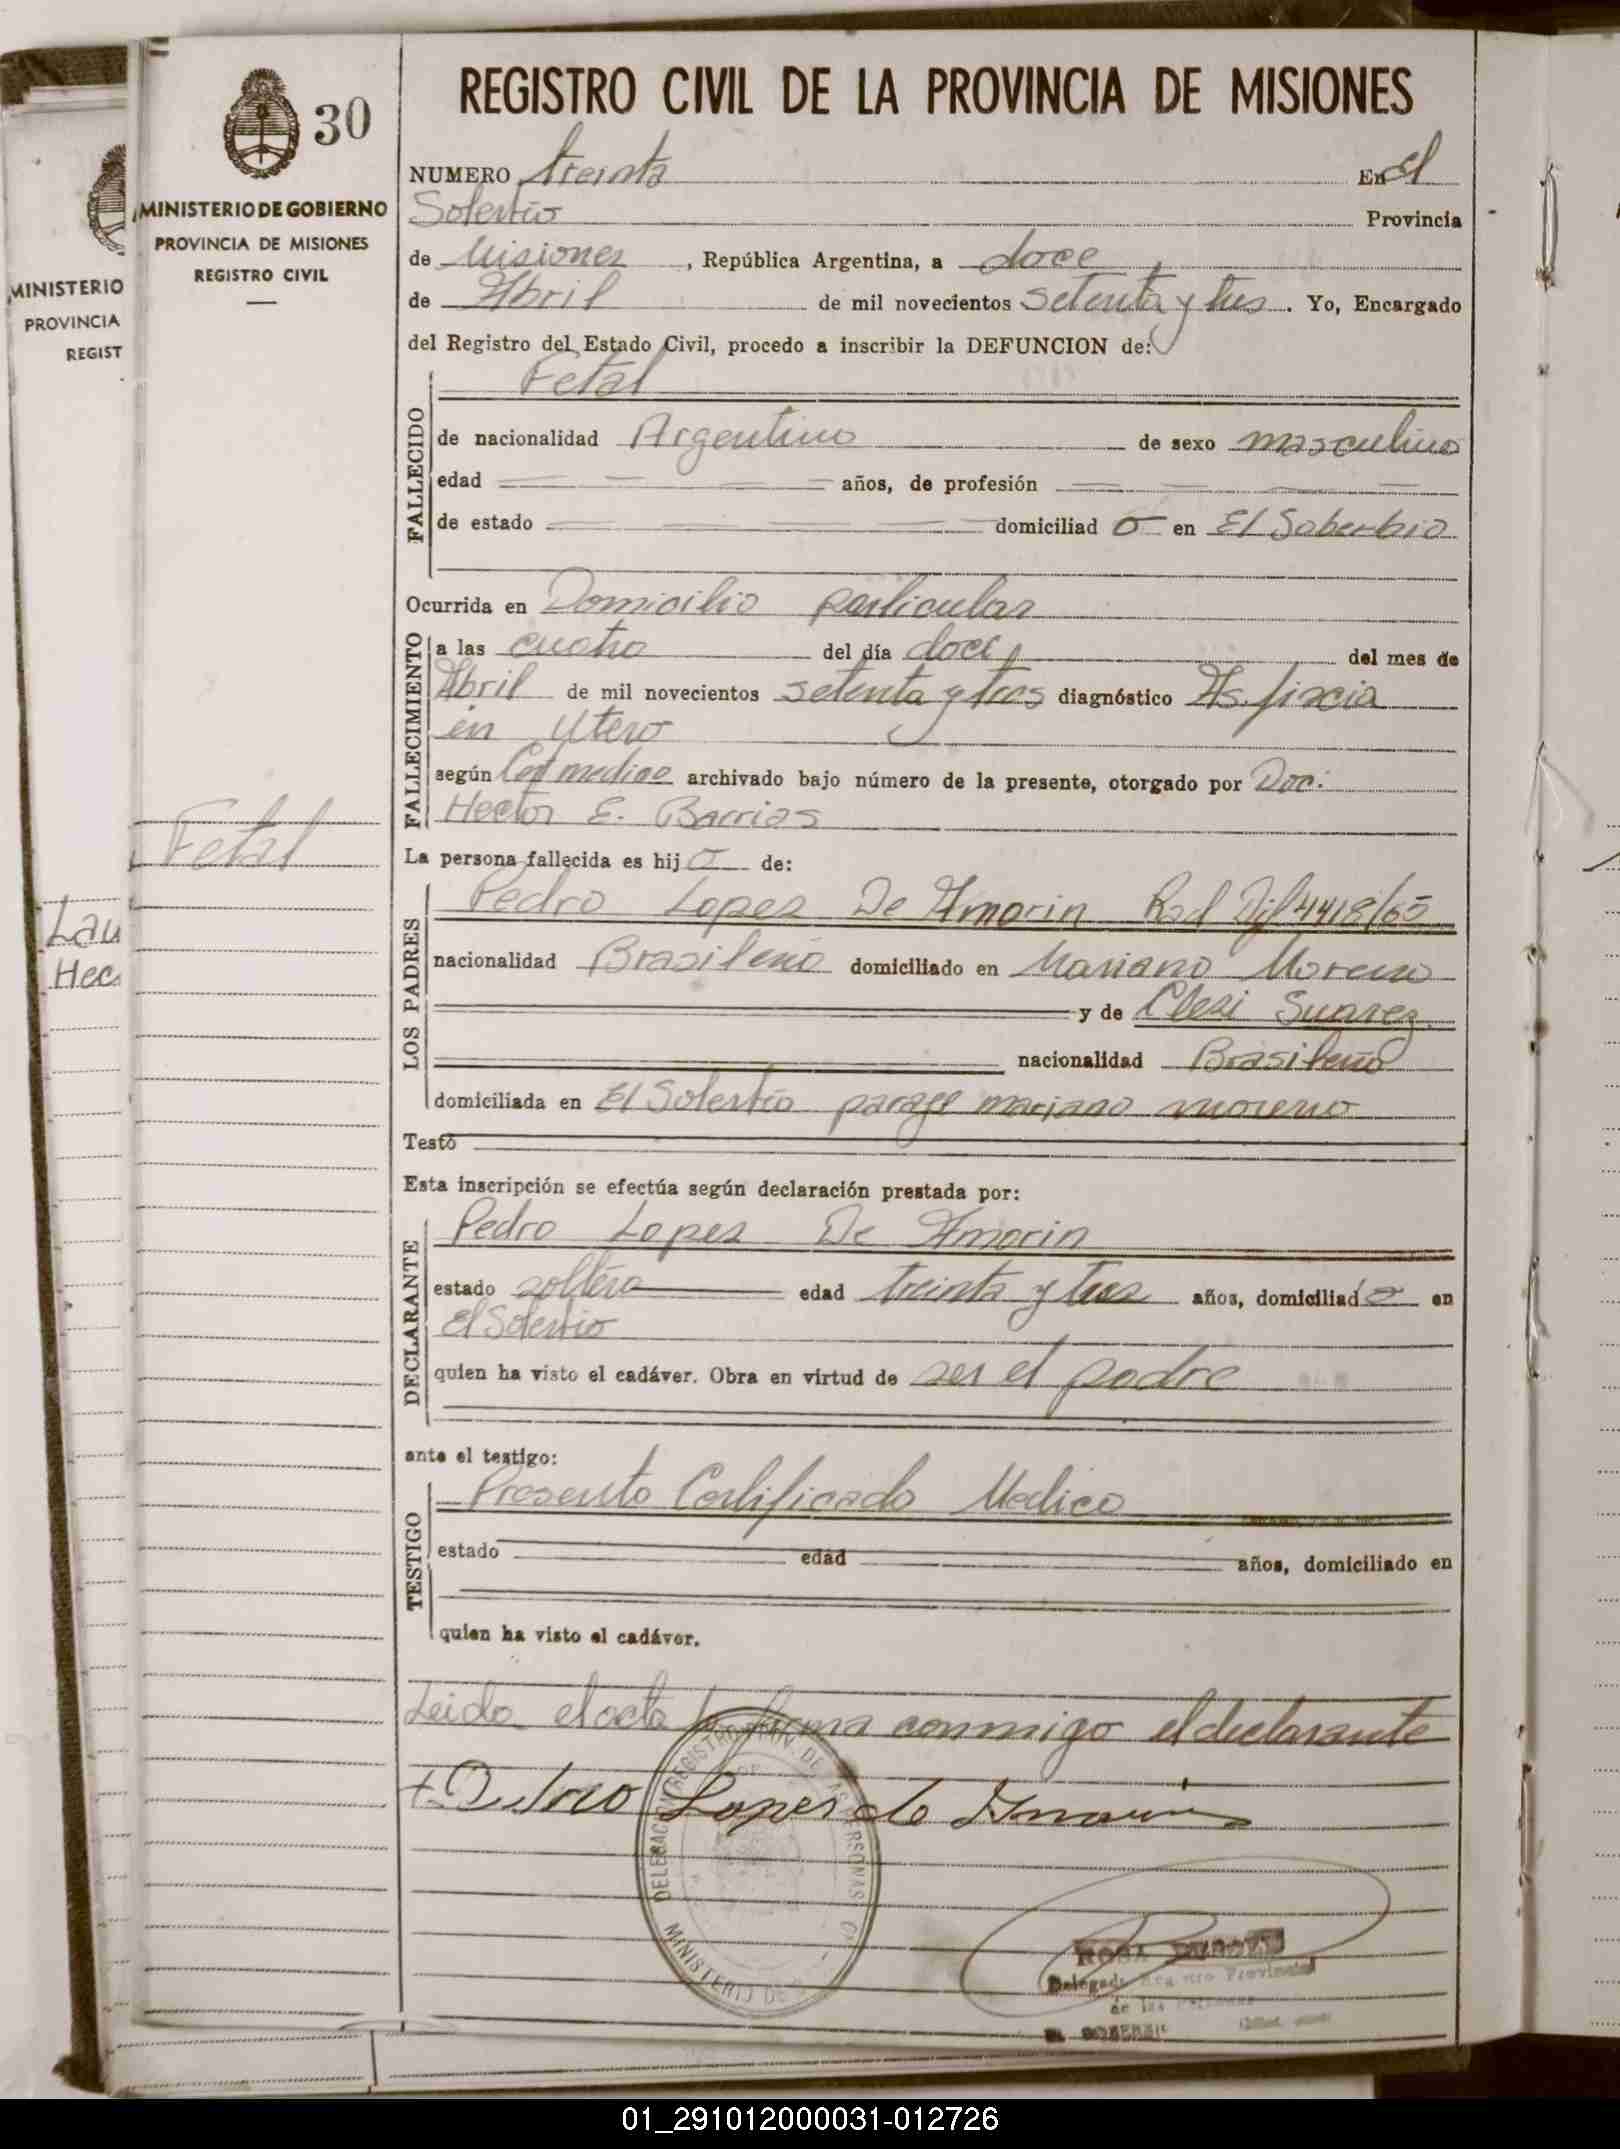 REGISTRO CIVIL DE LA PROVINCIA DE MISIONES
30
MINISTERIO DE GOBIERNO
PROVINCIA DE MISIONES
REGISTRO CIVIL
MINISTERIO
PROVINCIA
REGIST
Lau
Hec
Fetal
NUMERO treinta En El
Soberbio Provincia
de Misiones, República Argentina, a doce
de Abril de mil novecientos setenta y tres. Yo, Encargado
del Registro del Estado Civil, procedo a inscribir la DEFUNCION de:
Fetal
FALLECIDO
de nacionalidad Argentino de sexo masculino
edad años, de profesión
de estado domiciliad o en El Soberbio
Ocurrida en Domicilio particular
FALLECIMIENTO
a las cuatro del día doce del mes de
Abril de mil novecientos setenta y tres diagnóstico Asfixia
en Utero
según Cert medico archivado bajo número de la presente, otorgado por Doc:
Hector E. Barrias
La persona fallecida es hij o de:
LOS PADRES
Pedro Lopez De Amorin Rad 4418/65
nacionalidad Brasileño domiciliado en Mariano Moreno
y de Clesi Suarez
nacionalidad Brasileño
domiciliada en El Soberbio paraje mariano moreno
Testó
Esta inscripción se efectúa según declaración prestada por:
DECLARANTE
Pedro Lopez De Amorin
estado soltero edad treinta y tres años, domiciliad o en
El Soberbio
quien ha visto el cadáver. Obra en virtud de ser el padre
ante el testigo:
TESTIGO
Presento Certificado Medico
estado edad años, domiciliado en
quien ha visto el cadáver.
Leida el acta la firma conmigo el declarante
Lopes de Amorin
DELEGACION REGISTRO PROV. DE LAS PERSONAS
MINISTERIO DE
ROSA
Delegada Registro Provincial
de las Personas
EL SOBERBIO
01_291012000031-012726